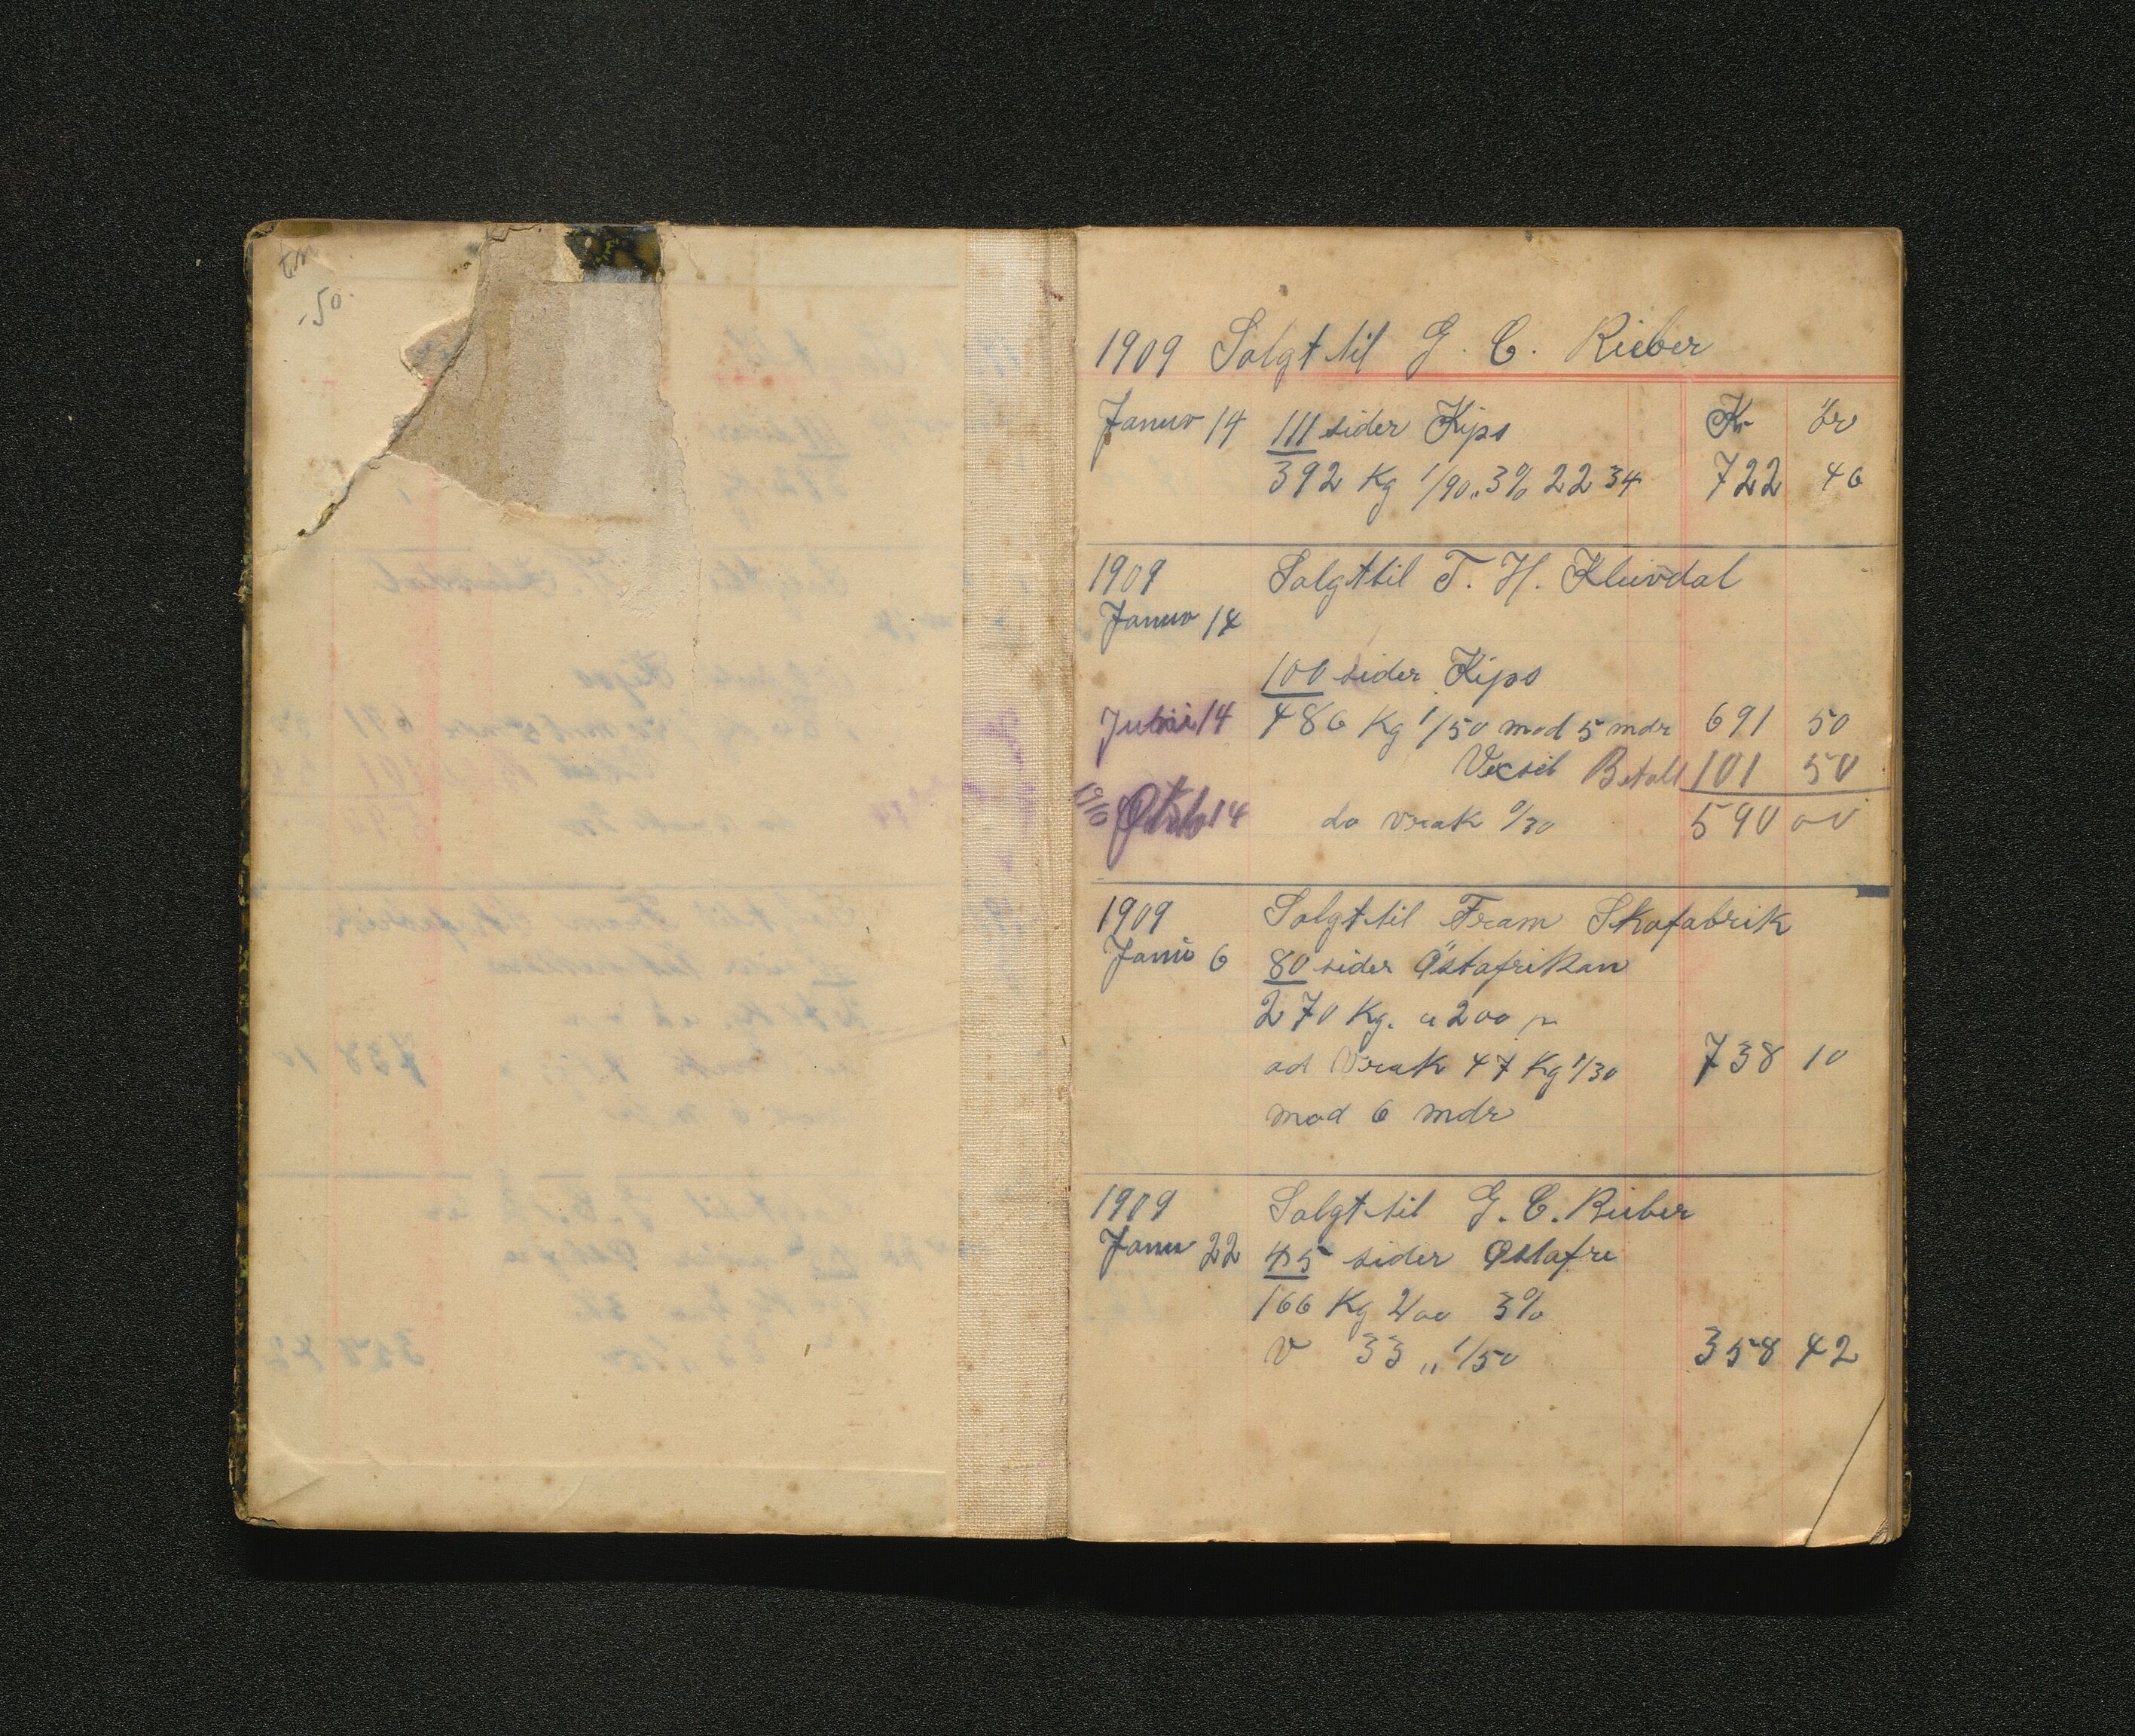 -50.
1909 Solgt til G. C. Rieber
Januar 14 111 sider Kips Kr öre
392 Kg 1/90 .. 3% 22 34 722 46
1909 Solgt til T. H. Kleivdal
Januar 14
100 sider Kips
14 486 Kg 1/50 mod 5 mdr 691 50
Vecsel Betalt 101 50
1910 Oktob 14 do vrak 0/30 590 00
1909 Solgt til Fram Skofabrik
Janu 6 80 sider Östafrikan
270 Kg. a 200
ad Vrak 47 Kg 1/30 738 10
mod 6 mdr
1909 Solgt til G. C. Rieber
Janu 22 45 sider Östafre
166 Kg 2/00 3%
V 33 „ 1/50 358 42